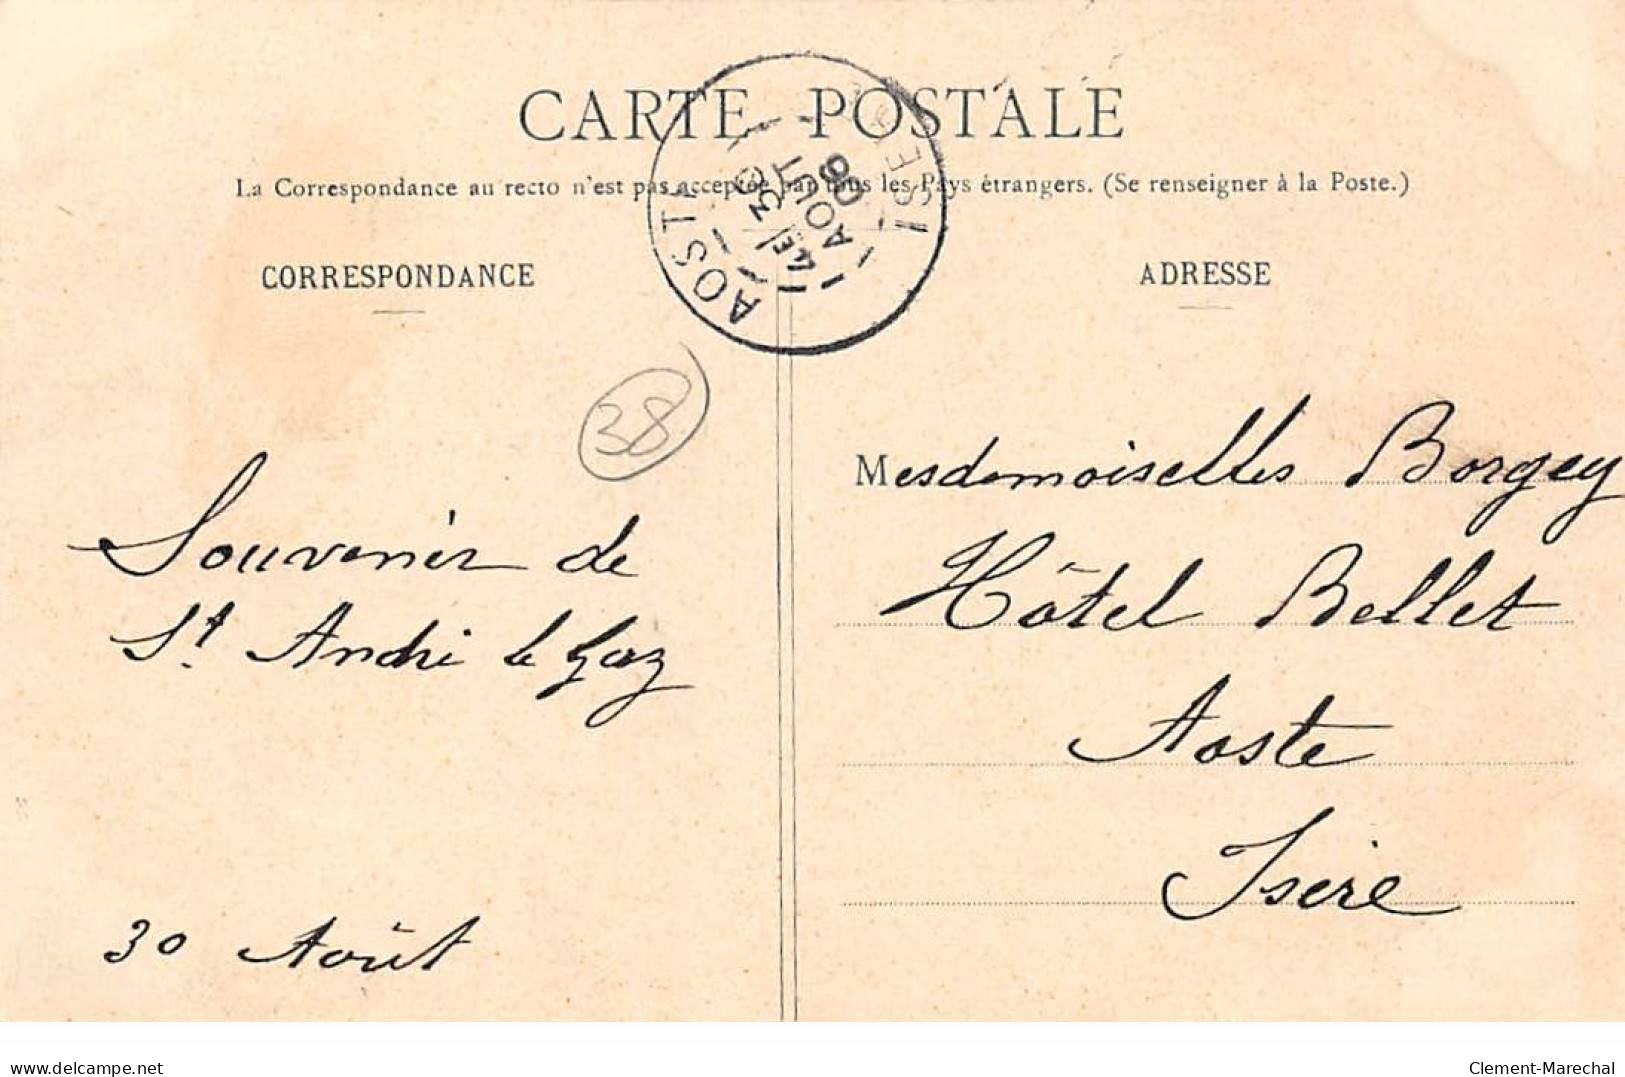 CARTE POSTALE
La Correspondance au recto n'est pas acceptée par tous les Pays étrangers. (Se renseigner à la Poste.)
AOSTE ISERE
4E 30
AOUT
06
CORRESPONDANCE
ADRESSE
38
Souvenir de
St. André le Gaz
30 Août
Mesdemoiselles Borgey
Hôtel Bellet
Aoste
Isère
www.delcampe.net
Clement-Marechal